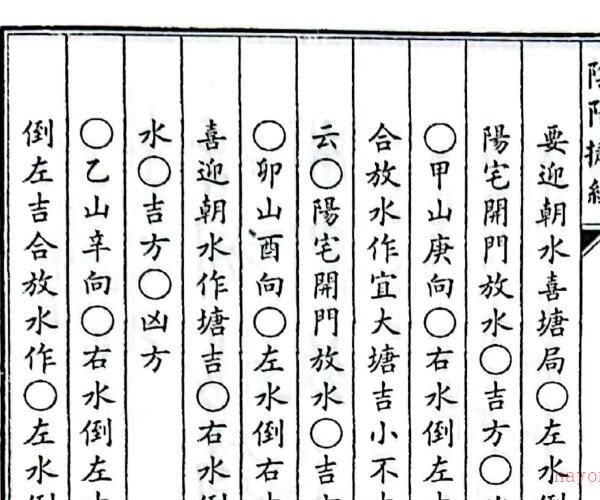 陰陽捷經
要迎朝水喜塘局〇左水倒
陽宅開門放水〇吉方〇
〇甲山庚向〇右水倒左
合放水作宜大塘吉小不
云〇陽宅開門放水〇吉
〇卯山酉向〇左水倒右
喜迎朝水作塘吉〇右水倒
水〇吉方〇凶方
〇乙山辛向〇右水倒左
倒左吉合放水作〇左水倒
nayo